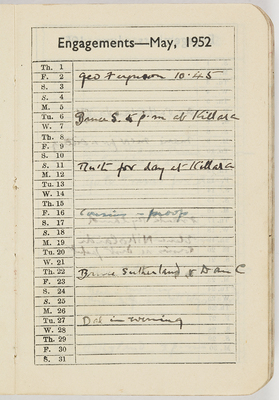 Engagements—May, 1952
Th. 1
F. 2 Geo Ferguson 10.45
S. 3
S. 4
M. 5
Tu. 6 5 p.m at Killara
W. 7
Th. 8
F. 9
S. 10
S. 11 Ruth for day at Killara
M. 12
Tu. 13
W. 14
Th. 15
F. 16 Cousins – proofs
S. 17
S. 18
M. 19
Tu. 20
W. 21
Th. 22 Bruce Sutherland & Dan C
F. 23
S. 24
S. 25
M. 26
Tu. 27 in evening
W. 28
Th. 29
F. 30
S. 31